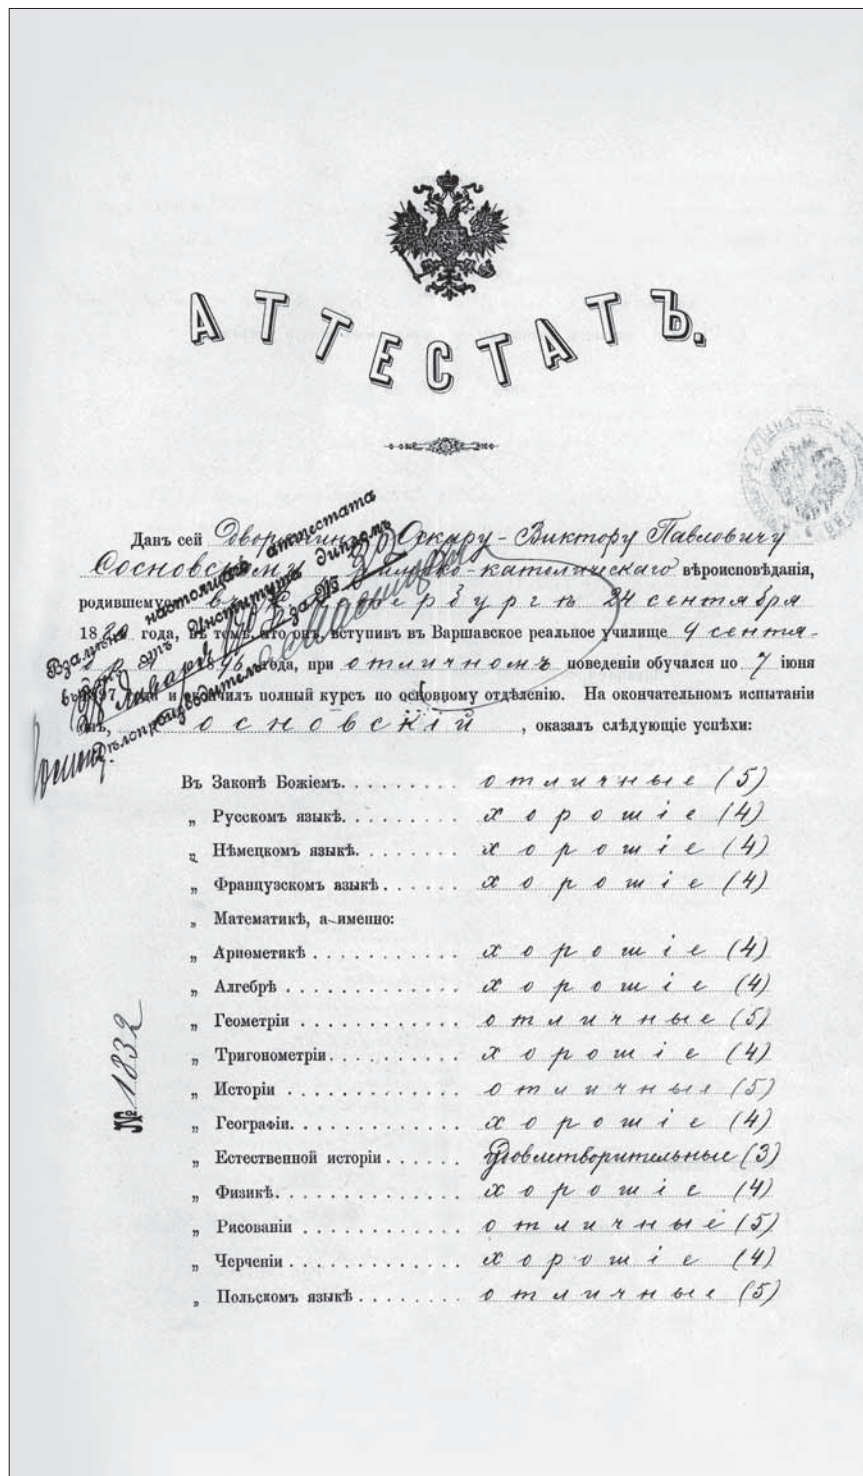 АТТЕСТАТЪ.
Данъ сей Дворянину Оскару-Виктору Павловичу
Сосновскому Римско-католическаго вѣроисповѣданія,
родившемуся въ 24 сентября
18 года, въ томъ, что онъ, вступивъ въ Варшавское реальное училище 4 сентя-
бря 1896 года, при отличномъ поведеніи обучался по 7 іюня
1897 года и кончилъ полный курсъ по основному отдѣленію. На окончательном испытаніи
онъ, Сосновскій, оказал слѣдующіе успѣхи:
Взамѣнъ настоящаго аттестата
выданъ отъ Института дипломъ
Января за №
Дѣлопроизводитель
Въ Законѣ Божіемъ. отличные (5)
„ Русскомъ языкѣ. хорошіе (4)
„ Нѣмецкомъ языкѣ. хорошіе (4)
„ Французскомъ языкѣ хорошіе (4)
„ Математикѣ, а именно:
„ Ариѳметикѣ хорошіе (4)
„ Алгебрѣ хорошіе (4)
„ Геометріи отличные (5)
„ Тригонометріи. хорошіе (4)
„ Исторіи отличные (5)
„ Географіи. хорошіе (4)
„ Естественной исторіи удовлетворительные (3)
„ Физикѣ. хорошіе (4)
„ Рисованіи отличные (5)
„ Черченіи хорошіе (4)
„ Польскомъ языкѣ отличные (5)
№ 1832